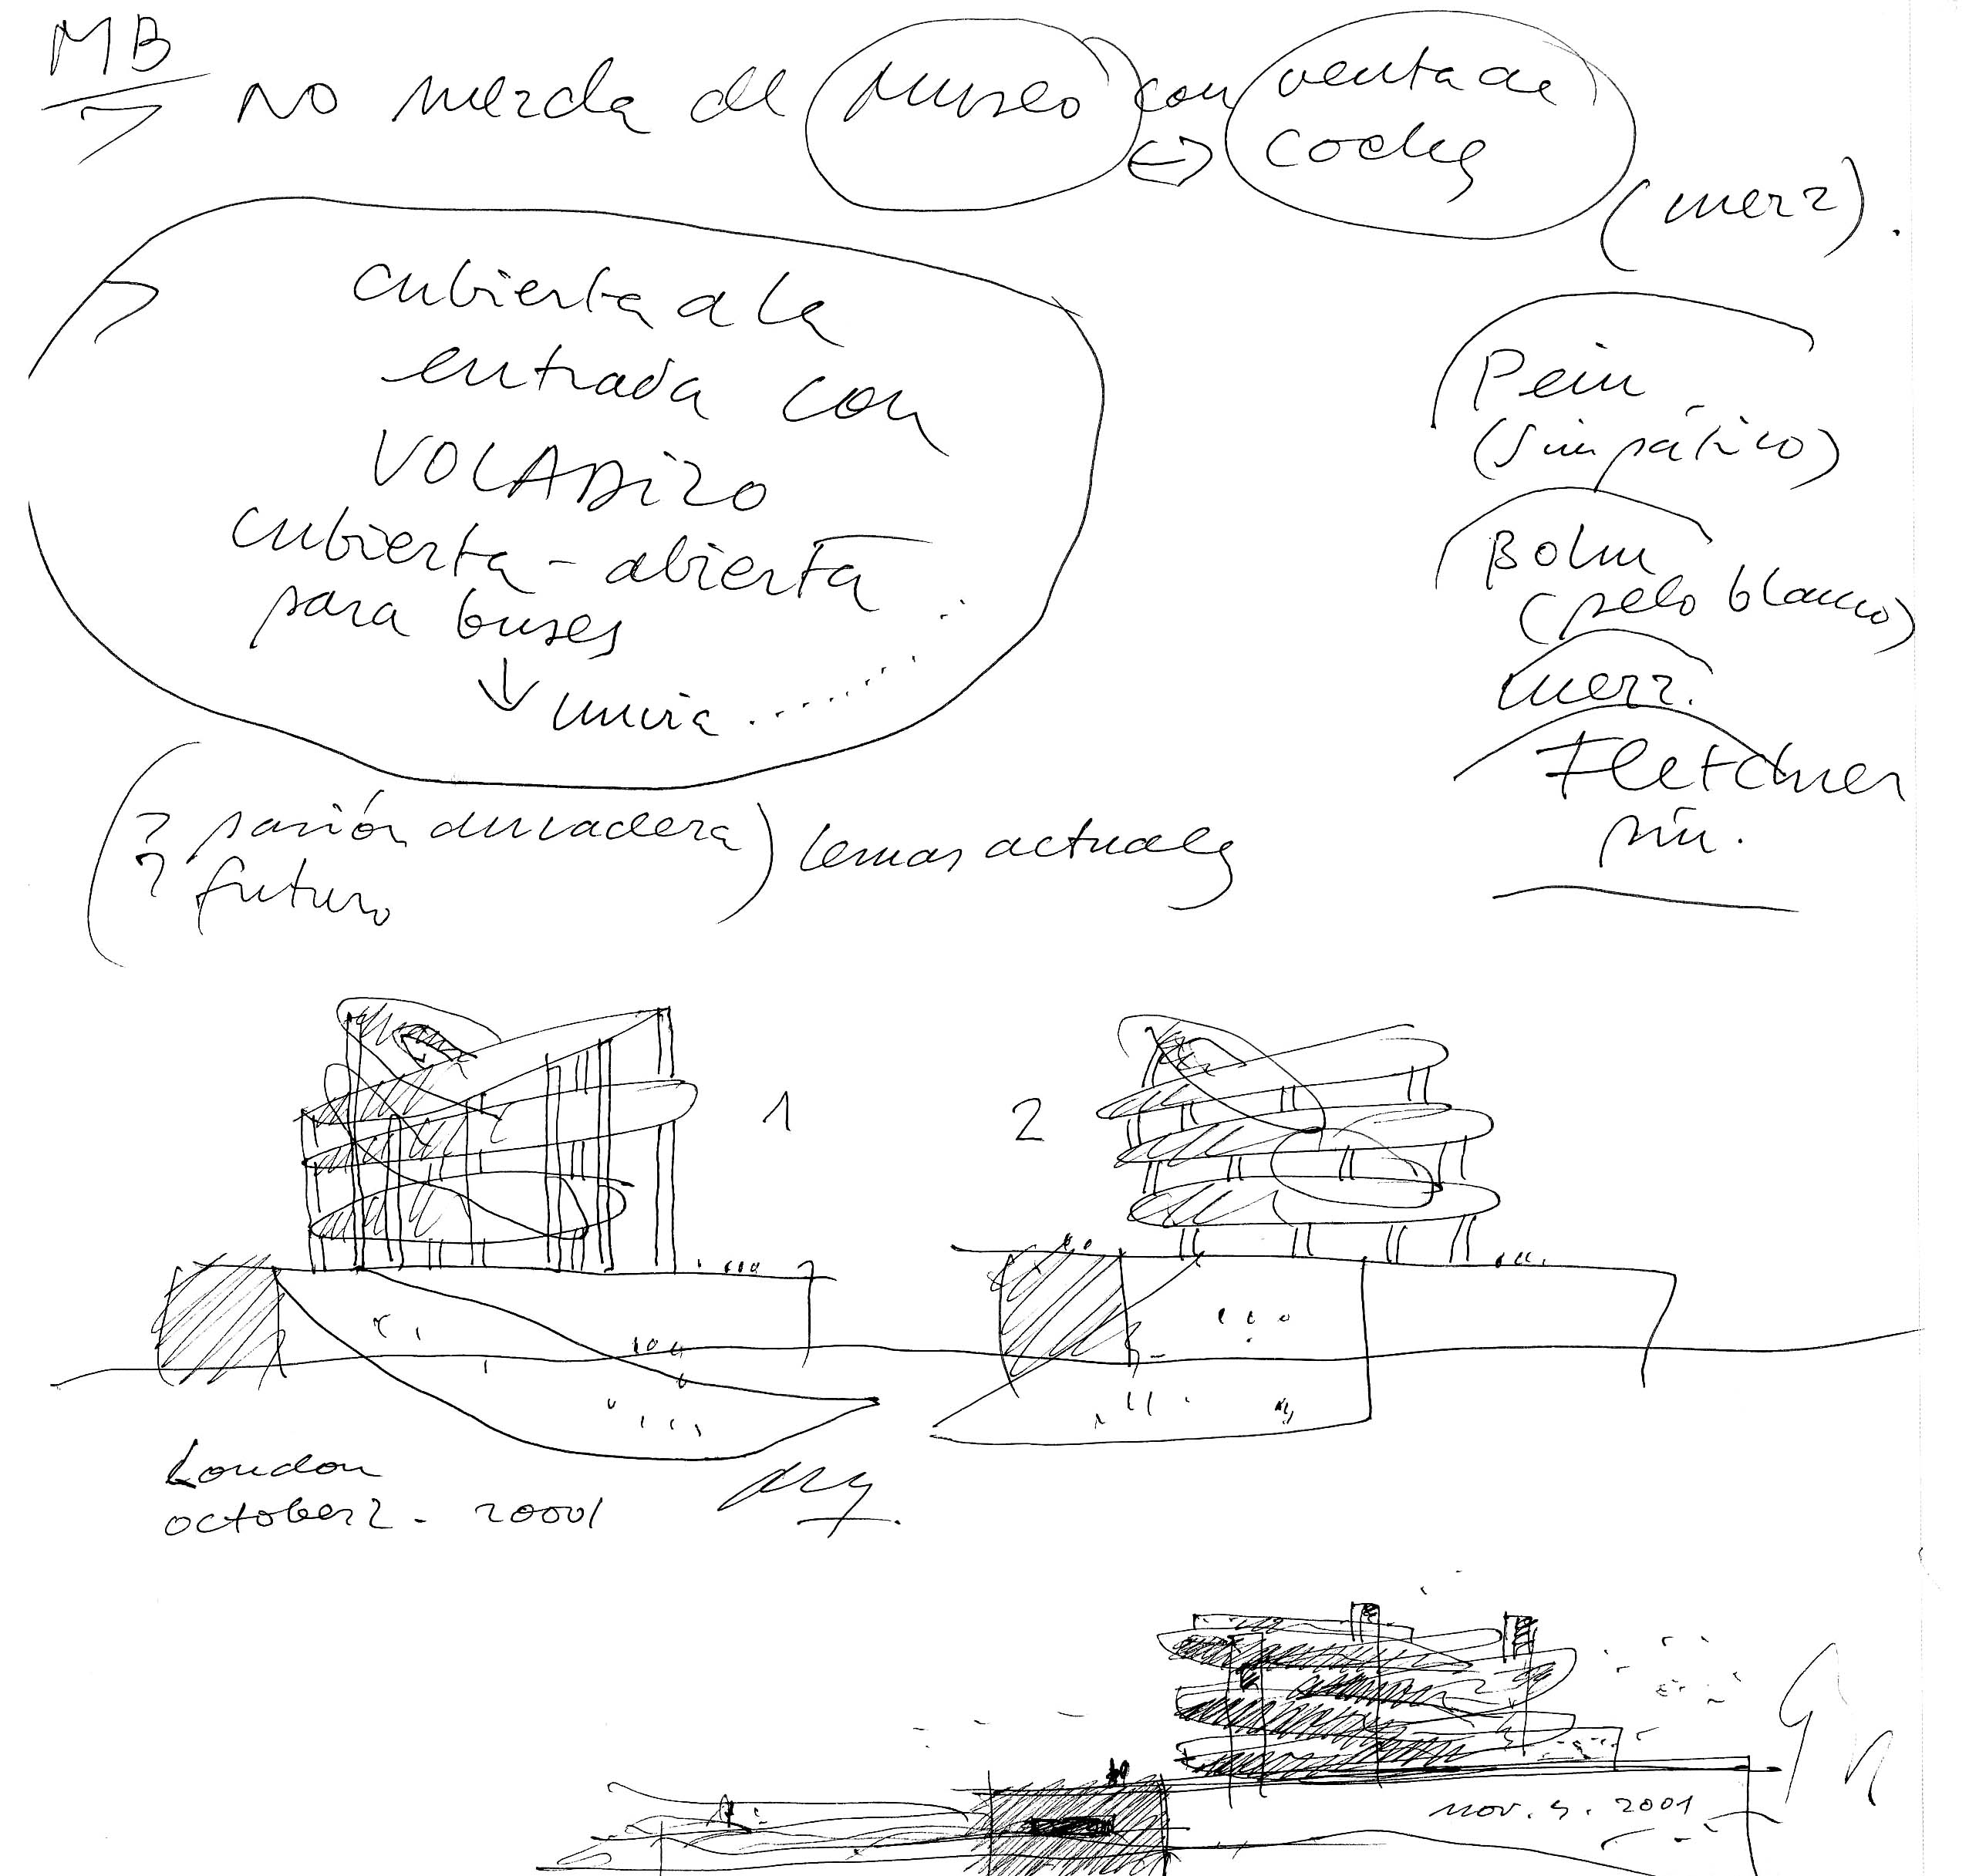 MB
NO mezcla de museo con venta de
coches
(merz).
cubierta a la
entrada con
VOLADIZO
cubierta - abierta
para buses
↓ lluvia ........
Pein
(simpático)
Bohm
(pelo blanco)
merz.
Fletchner
min.
(? pasión duradera) temas actuales
? futuro
1
2
London
october 2 - 20001
nov. 4. 2001